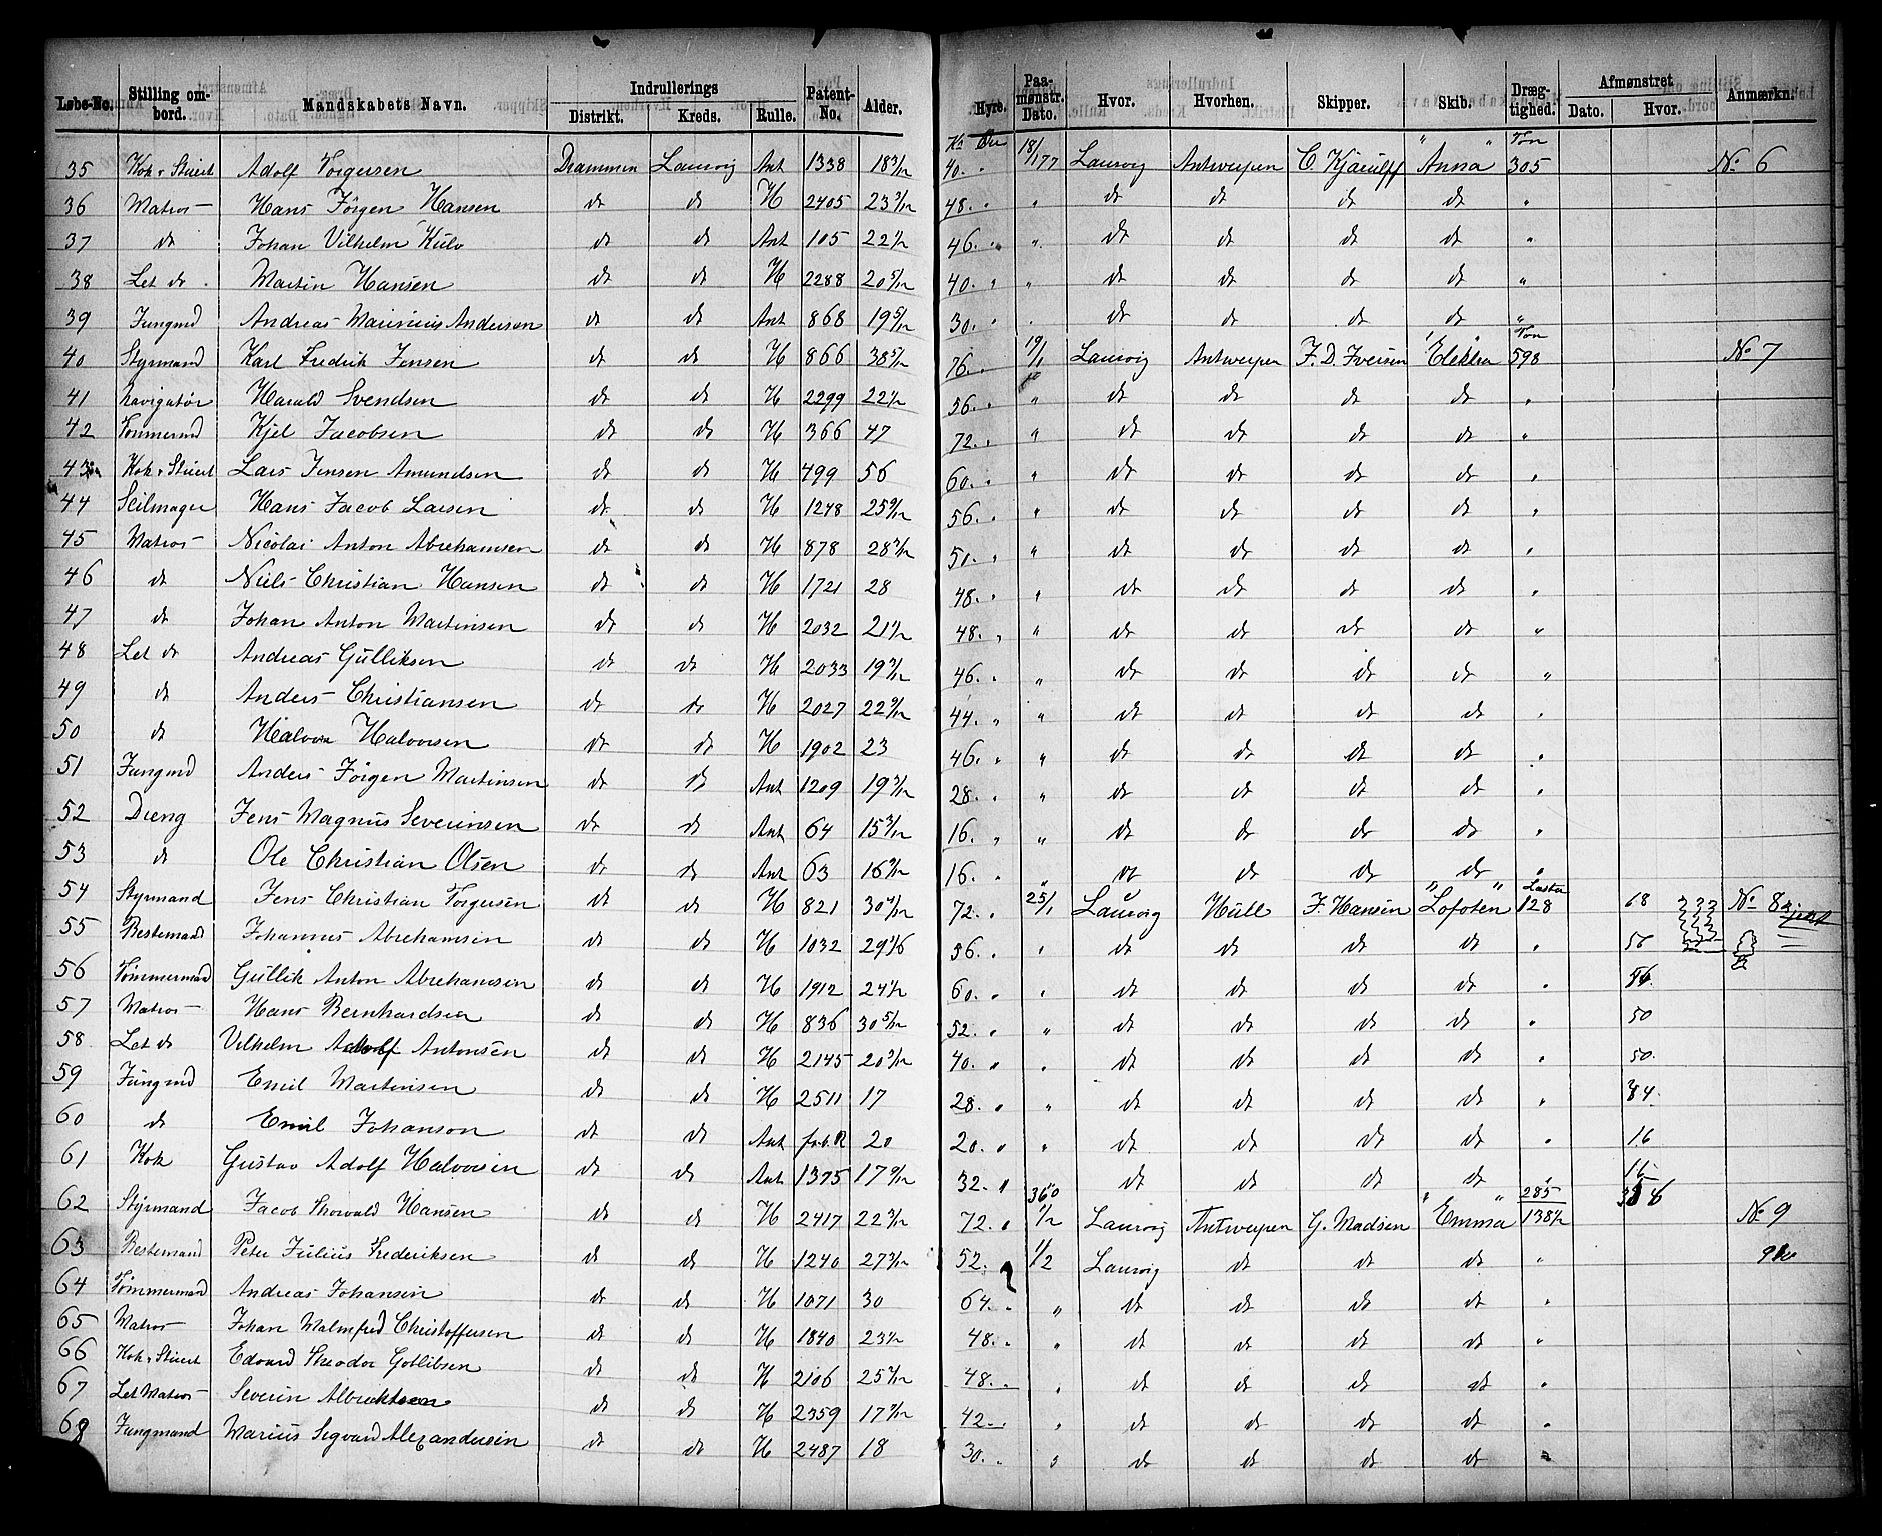 Løbe-No. Stilling ombord. Mandskabets Navn. Indrullerings Distrikt. Kreds. Rulle. Patent-No. Alder. Hyre. Paamønstr. Dato. Hvor. Hvorhen. Skipper. Skib. Drægtighed. Afmønstret Dato. Hvor. Anmærkn.
35 Kok & Stuert Adolf Torgersen Drammen Laurvig Ant 1338 18 3/12 Kr Øre 40. " 18/1 77 Laurvig Antwerpen C. Kjærulff "Anna" Ton 305 No 6
36 Matros Hans Jörgen Hansen do do H 2405 23 3/12 48. " " do do do do "
37 do Johan Vilhelm do do Ant 105 22 1/2 46. " " do do do do "
38 Let do Martin Hansen do do H 2288 20 5/12 40. " " do do do do "
39 Jungmd Andreas Marinius Andersen do do Ant 868 19 5/12 30. " " do do do do "
40 Styrmand Karl Fredrik Jensen do do H 866 38 5/12 76. " 19/1 Laurvig Antwerpen F. D. Iversen "Elektra" Ton 598 No 7
41 Navigatör Harald Svendsen do do H 2299 22 1/2 56. " " do do do do "
42 Tömmermd Kjel Jacobsen do do H 366 47 72. " " do do do do "
43 Kok & Stuert Lars Jensen Amundsen do do H 499 56 60. " " do do do do "
44 Seilmager Hans Jacob Larsen do do H 1248 25 9/12 56. " " do do do do "
45 Matros Nicolai Anton Abrahamsen do do H 878 28 3/12 50. " " do do do do "
46 do Niels Christian Hansen do do H 1721 28 48. " " do do do do "
47 do Johan Anton Martinsen do do H 2032 21 1/2 48. " " do do do do "
48 Let do Andreas Gulliksen do do H 2033 19 3/12 46. " " do do do do "
49 do Anders Christiansen do do H 2027 22 9/12 44. " " do do do do "
50 do Halvor Halvorsen do do H 1902 23 46. " " do do do do "
51 Jungmd Anders Jörgen Martinsen do do Ant 1209 19 3/12 28. " " do do do do "
52 Dreng Jens Magnus Severinsen do do Ant 64 15 3/12 16. " " do do do do "
53 do Ole Christian Olsen do do Ant 63 16 9/12 16. " " do do do do "
54 Styrmand Jens Christian Torgersen do do H 821 30 4/12 72. " 25/1 Laurvig Hull F. Hansen "Lofoten" Læster 128 68 No 8
55 Bestemand Johannes Abrahamsen do do H 1032 29 1/6 56. " " do do do do " 56
56 Tömmermand Gullik Anton Abrahamsen do do H 1912 24 1/2 60. " " do do do do " 56
57 Matros Hans Bernhardsen do do H 836 30 5/12 52. " " do do do do " 50
58 Let do Vilhelm Adolf Antonsen do do H 2145 20 3/12 40. " " do do do do " 50.
59 Jungmd Emil Martinsen do do H 2511 17 28. " " do do do do " 34.
60 do Emil Johanson do do Ant 20 20. " " do do do do " 16
61 Kok Gustav Adolf Halvorsen do do Ant 1375 17 9/12 32. " " do do do do " 16
62 Styrmand Jacob Thorvald Hansen do do H 2417 22 3/12 360 72. " 1/2 Laurvig Antwerpen G. Madsen "Emma" 285 138 1/2 No 9
63 Bestemand Peter Julius Frederiksen do do H 1240 27 3/12 52. 1/2 Laurvig do do do "
64 Tömmermand Andreas Johansen do do H 1071 30 64. " " do do do do "
65 Matros Johan Malmfred Christoffersen do do H 1840 23 1/2 48. " " do do do do "
66 Kok & Stuert Edvard Theodor Gotlibsen do do H 2106 25 4/12 48. " " do do do do "
67 Let Matros Severin Albrektsen do do H 2359 17 7/12 42. " " do do do do "
68 Jungmand Marius Sigvard Alexandersen do do H 2487 18 30. " " do do do do "